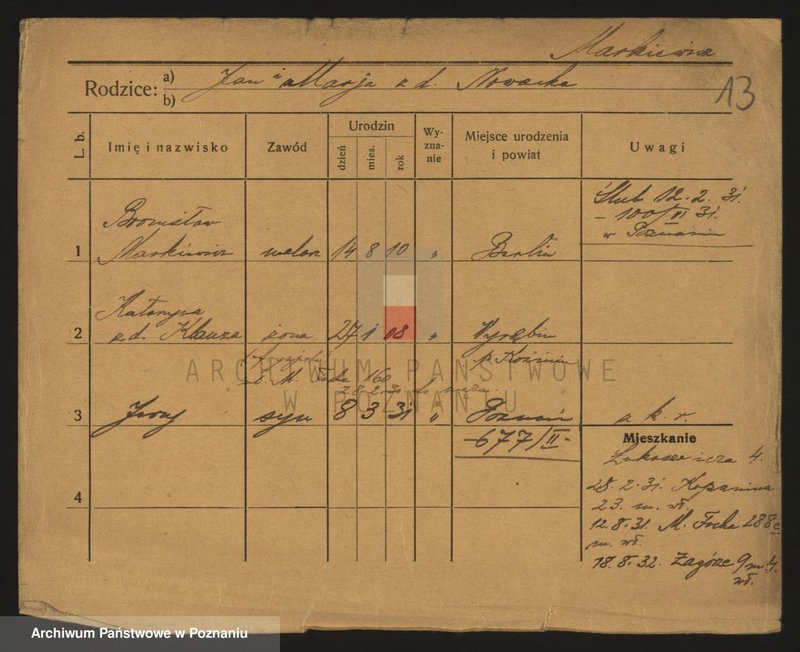 Markiewicz
13
Rodzice: a) Jan i Marja z d. Nowacka
b)
L. b.
Imię i nazwisko
Zawód
Urodzin
dzień
mies.
rok
Wy-
zna-
nie
Miejsce urodzenia
i powiat
Uwagi
Ślub 12. 2. 31.
- 100/II 31.
w Poznaniu
Bronisław
1 Markiewicz malarz 14 8 10 „ Berlin
Katarzyna
2 z d. żona 27 1 08 „
p. Koźmin
M. Focha 160
28.2.30 do męża
3 Jerzy syn 8 3 31 „ Poznań a. k. r.
-677/II-
Mieszkanie
4
28. 2. 31.
23. m. wł.
12. 8. 31. M. Focha 288
m. wł.
18. 8. 32. Zagórze 9 m 4.
wł.
ARCHIWUM PAŃSTWOWE
W POZNANIU
Archiwum Państwowe w Poznaniu